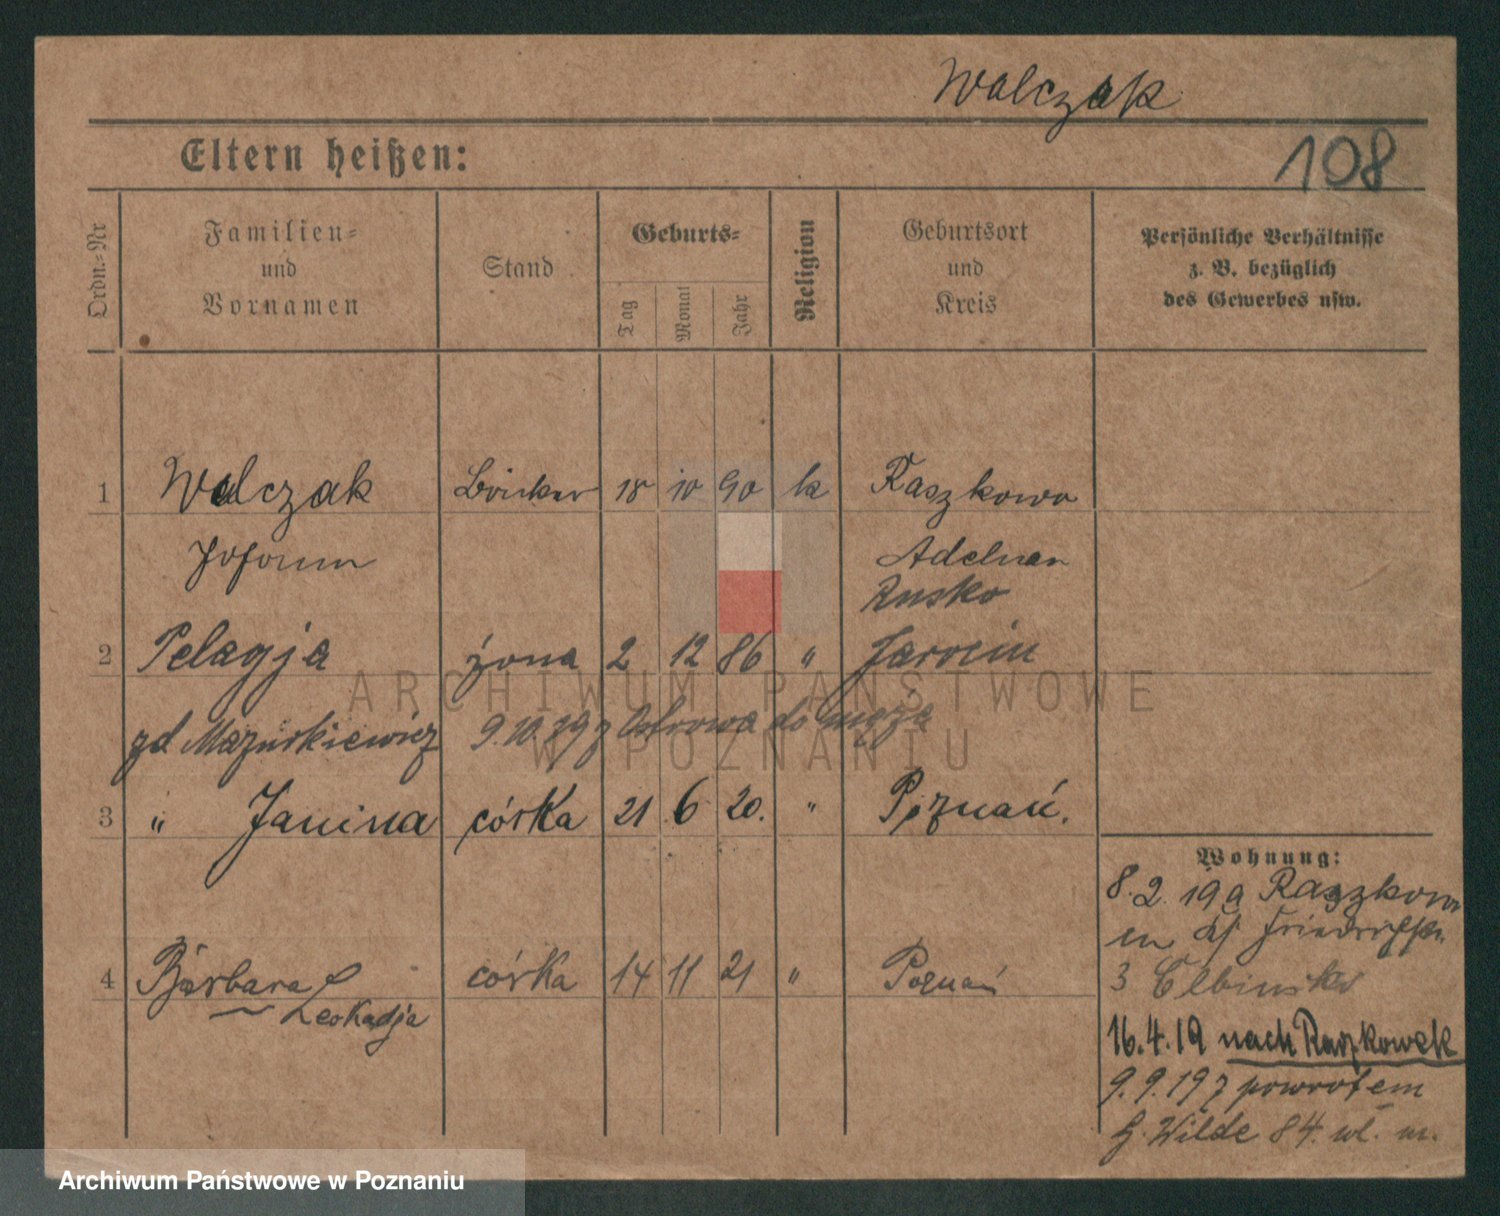 Walczak
Eltern heißen:
108
Ordn.-Nr
Familien-
und
Vornamen
Stand
Geburts-
Tag
Monat
Jahr
Religion
Geburtsort
und
Kreis
Persönliche Verhältnisse
z. B. bezüglich
des Gewerbes usw.
1 Walczak 18 10 90 k Raszkowo
Adelnau
Rusko
2 Pelagja żona 2 12 86 " Jarocin
zd Mazurkiewicz 9.10.19 z Ostrowa do męża
3 " Janina córka 21 6 20. " Poznań.
Wohnung:
8.2.19 a Raszkow
3
4 Barbara córka 14 11 21 " Poznań
Leokadja
16.4.19 nach Raszkowek
9.9.19 z powrotem
G. Wilde 84. wł. m.
ARCHIWUM PAŃSTWOWE
W POZNANIU
Archiwum Państwowe w Poznaniu